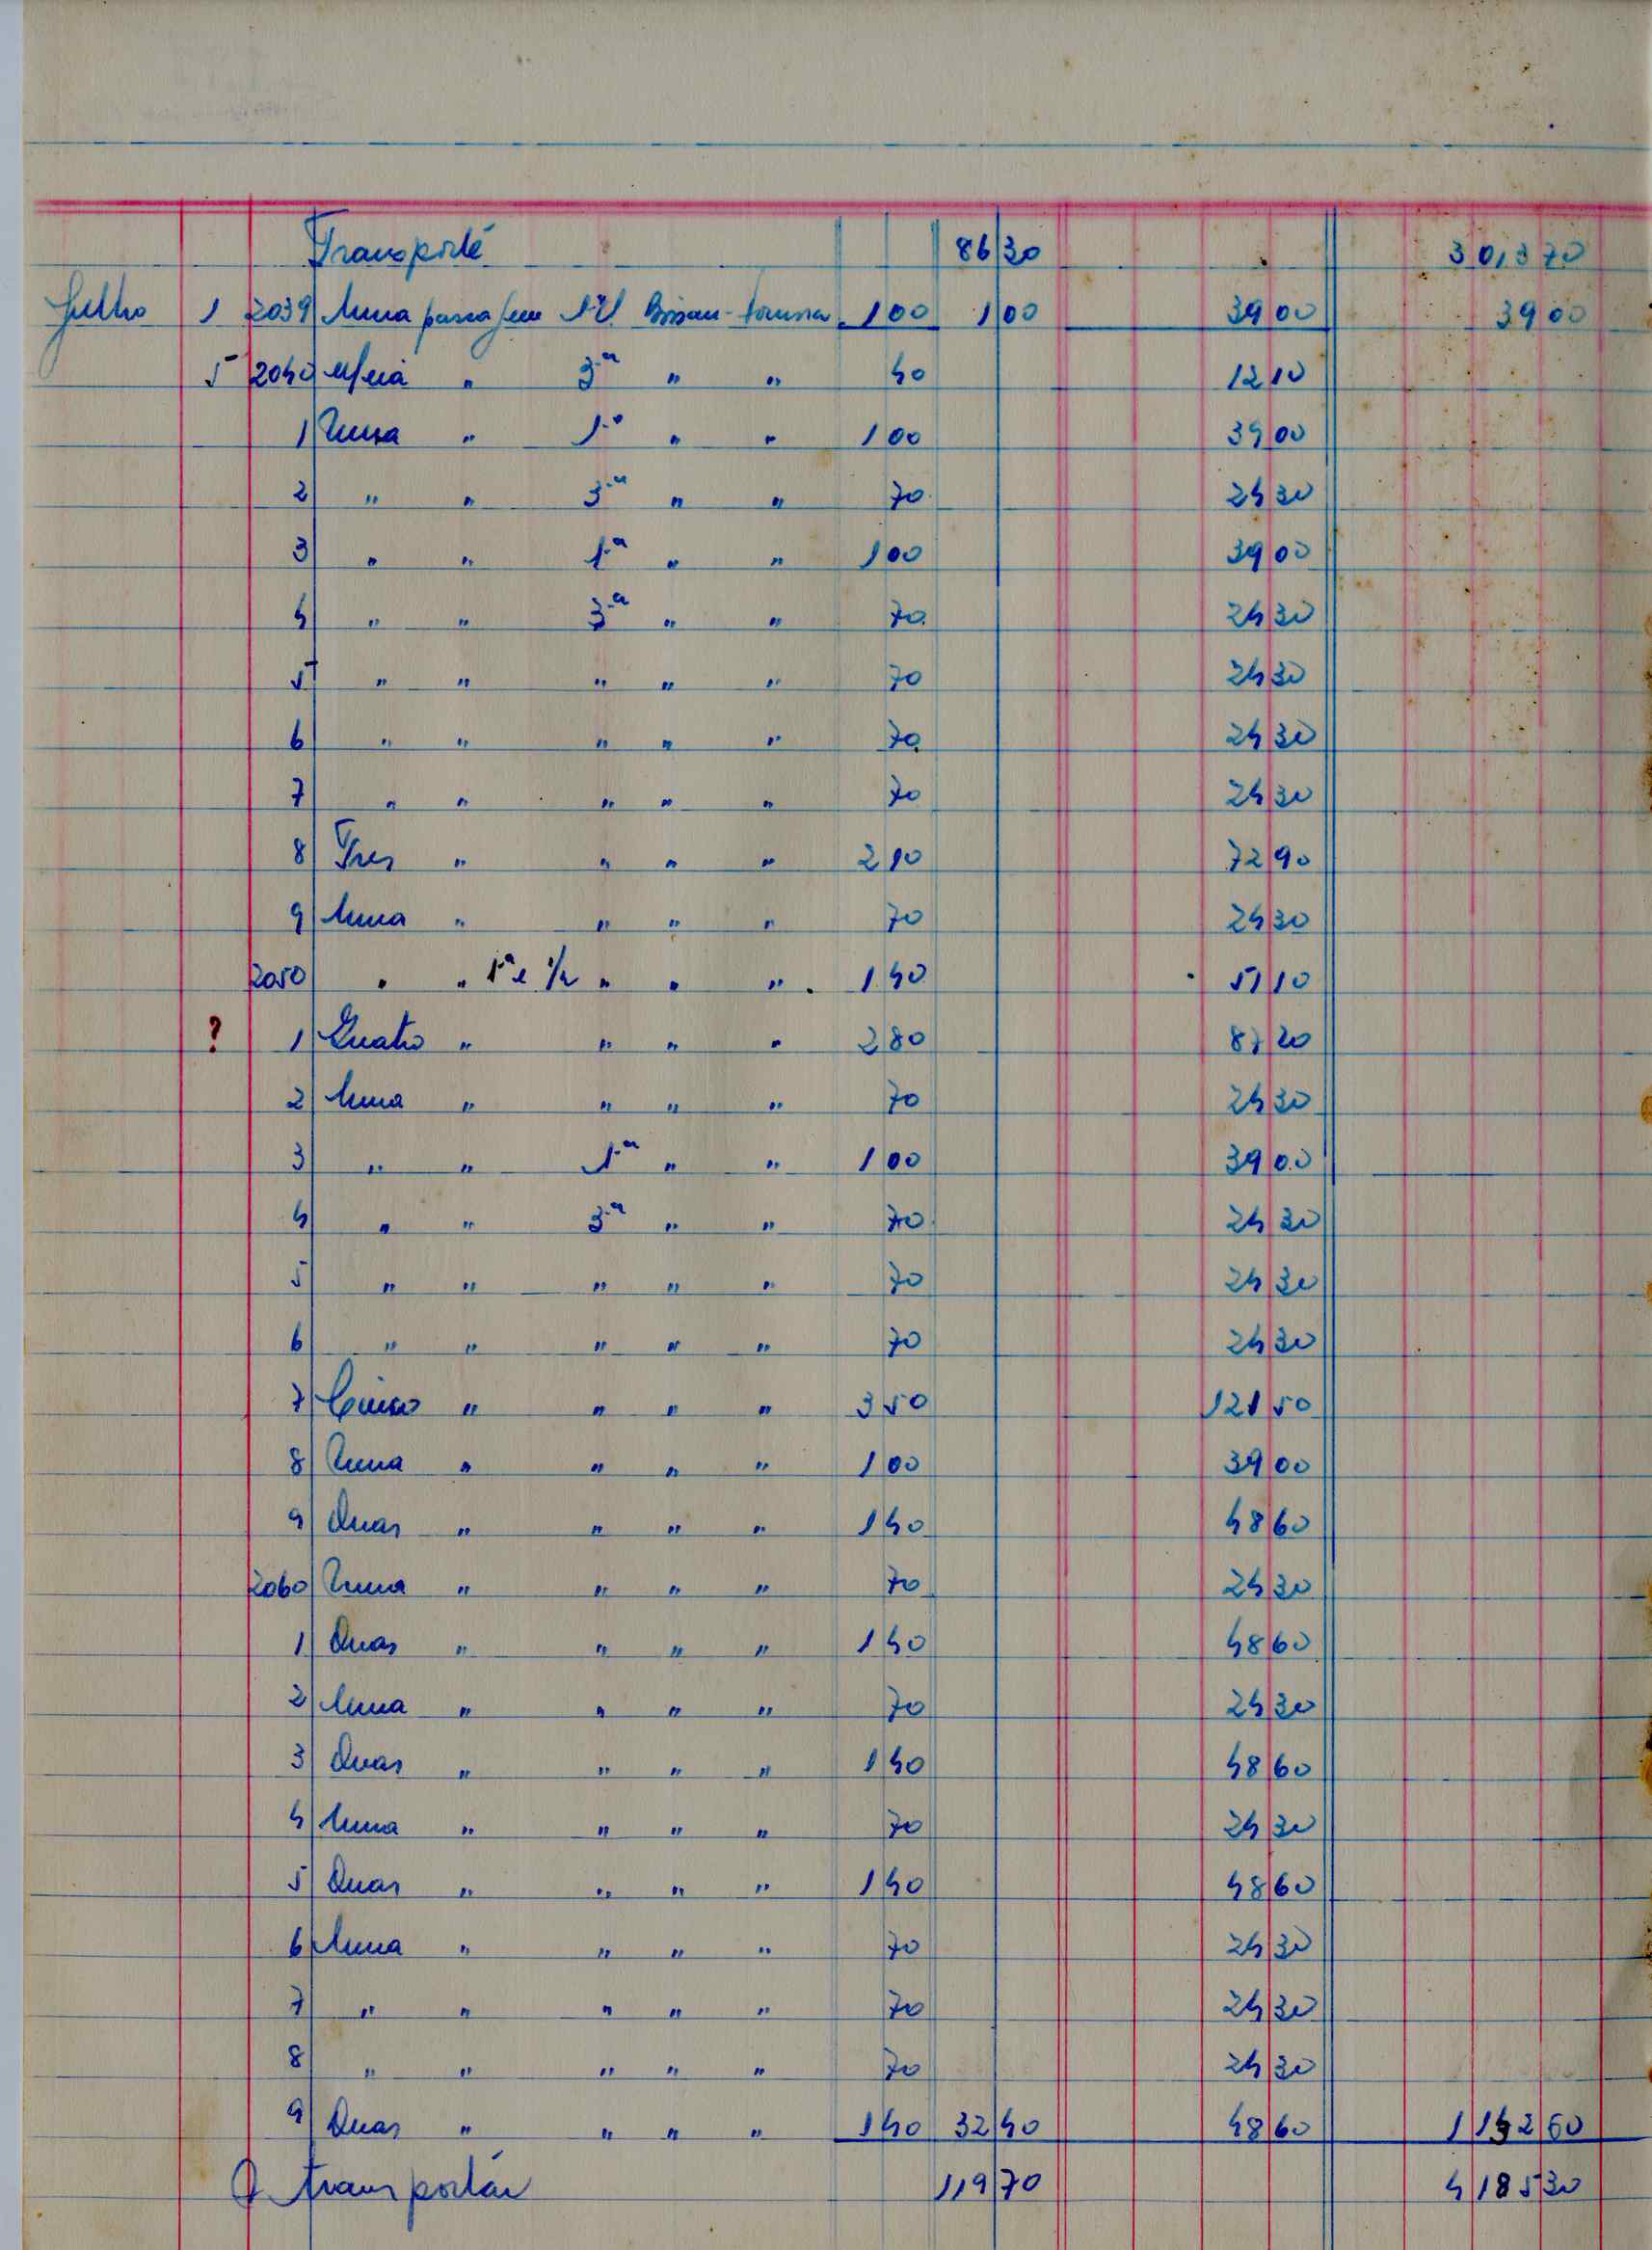 Transporte 86 30 30,370
Julho 1 2039 Uma passagem 1ª Bissau- 100 1 00 39 00 39 00
5 2040 Meia " 3ª " " 40 12 10
1 Uma " 1ª " " 100 39 00
2 " " 3ª " " 70 24 30
3 " " 1ª " " 100 39 00
4 " " 3ª " " 70 24 30
5 " " " " " 70 24 30
6 " " " " " 70 24 30
7 " " " " " 70 24 30
8 Tres " " " " 210 72 90
9 Uma " " " " 70 24 30
2050 " " 1ª e 1/2 " " " 140 51 10
? 1 Quatro " " " " 280 87 20
2 Uma " " " " 70 24 30
3 " " 1ª " " 100 39 00
4 " " 3ª " " 70 24 30
5 " " " " " 70 24 30
6 " " " " " 70 24 30
7 Cinco " " " " 350 121 50
8 Uma " " " " 100 39 00
9 Duas " " " " 140 48 60
2060 Uma " " " " 70 24 30
1 Duas " " " " 140 48 60
2 Uma " " " " 70 24 30
3 Duas " " " " 140 48 60
4 Uma " " " " 70 24 30
5 Duas " " " " 140 48 60
6 Uma " " " " 70 24 30
7 " " " " " 70 24 30
8 " " " " " 70 24 30
9 Duas " " " " 140 32 40 48 60 1142 60
A transportar 119 70 4185 30